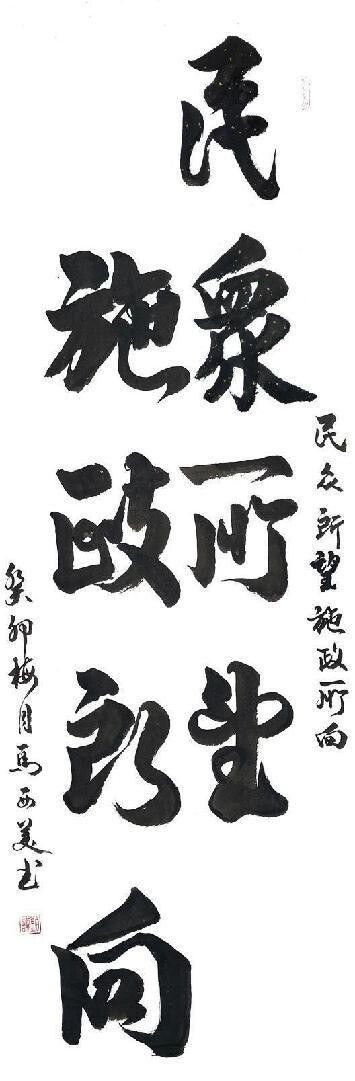 民众所望施政所向
民眾所望
施政所向
癸卯梅月馬西美书